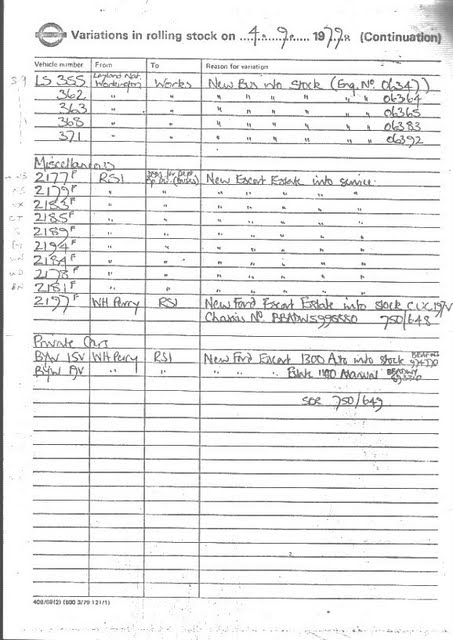 Variations in rolling stock on ...4...9... 1979 (Continuation)
Vehicle number From To Reason for variation
LS 355 Leyland Nat. Workington Works New Bus into Stock (Eng. No 06347)
362 " " " " " " " " 06364
363 " " " " " " " " 06365
368 " " " " " " " " 06383
371 " " " " " " " " 06392
Miscellaneous
2177F RSI New Escort Estate into service.
2179F " " " " " "
2183F " " " " " "
2185F " " " " " "
2189F " " " " " "
2194F " " " " " "
2184F " " " " " "
2178F " " " " " "
2181F " " " " " "
2197F WH Perry RSI New Ford Escort Estate into stock
Chassis No 750/648
Private Cars
BYW 15V WH Perry RSI New Ford Escort 1300 Auto into stock
BYW " " " " " Manual
SDR 750/649